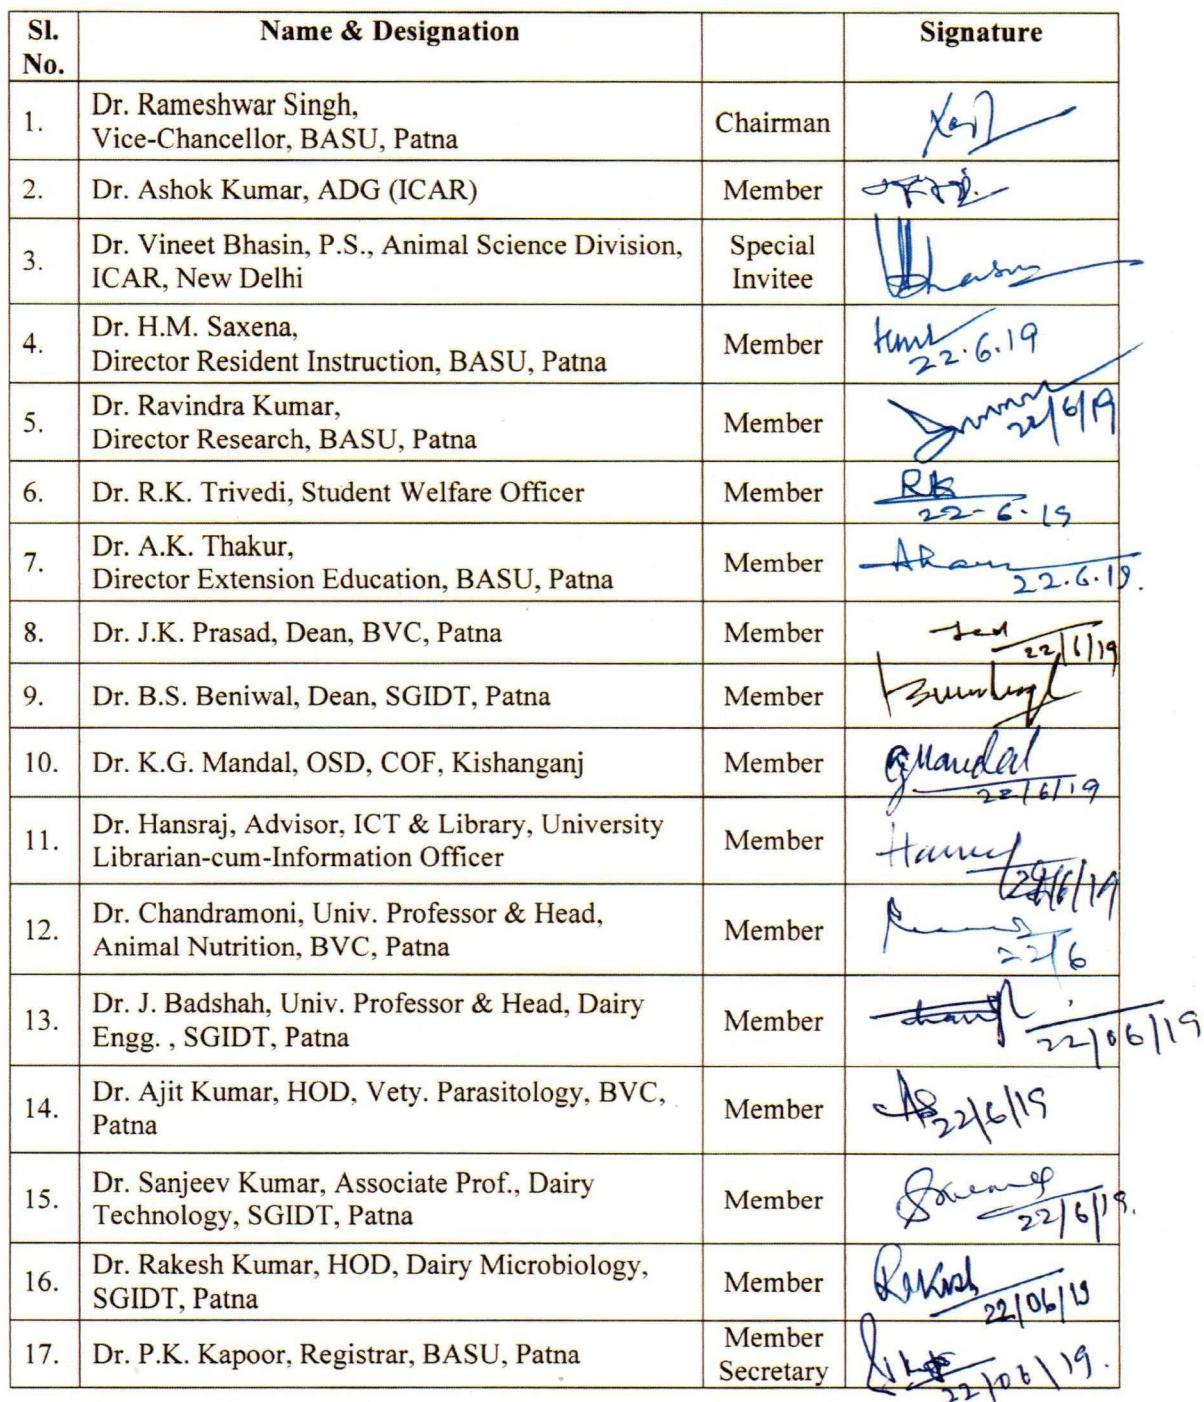 Sl. No.
Name & Designation
Signature
1.
Dr. Rameshwar Singh,
Vice-Chancellor, BASU, Patna
Chairman
2.
Dr. Ashok Kumar, ADG (ICAR)
Member
3.
Dr. Vineet Bhasin, P.S., Animal Science Division,
ICAR, New Delhi
Special
Invitee
4.
Dr. H.M. Saxena,
Director Resident Instruction, BASU, Patna
Member
22.6.19
5.
Dr. Ravindra Kumar,
Director Research, BASU, Patna
Member
22/6/19
6.
Dr. R.K. Trivedi, Student Welfare Officer
Member
RK
22-6-19
7.
Dr. A.K. Thakur,
Director Extension Education, BASU, Patna
Member
22.6.19.
8.
Dr. J.K. Prasad, Dean, BVC, Patna
Member
22/6/19
9.
Dr. B.S. Beniwal, Dean, SGIDT, Patna
Member
10.
Dr. K.G. Mandal, OSD, COF, Kishanganj
Member
Mandal
22/6/19
11.
Dr. Hansraj, Advisor, ICT & Library, University
Librarian-cum-Information Officer
Member
12.
Dr. Chandramoni, Univ. Professor & Head,
Animal Nutrition, BVC, Patna
Member
22/6
13.
Dr. J. Badshah, Univ. Professor & Head, Dairy
Engg. , SGIDT, Patna
Member
22/06/19
14.
Dr. Ajit Kumar, HOD, Vety. Parasitology, BVC,
Patna
Member
22/6/19
15.
Dr. Sanjeev Kumar, Associate Prof., Dairy
Technology, SGIDT, Patna
Member
22/6/19.
16.
Dr. Rakesh Kumar, HOD, Dairy Microbiology,
SGIDT, Patna
Member
Rakesh
22/06/19
17.
Dr. P.K. Kapoor, Registrar, BASU, Patna
Member
Secretary
22/06/19.